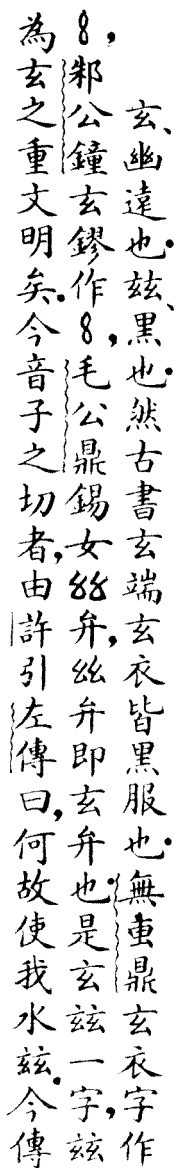 玄、幽遠也。玆、黑也。然古書玄端玄衣皆黑服也。無叀鼎玄衣字作
𠃉，邾公鐘玄鏐作𠃉，毛公鼎錫女𢆶弁，𢆶弁即玄弁也。是玄玆一字，玆
為玄之重文明矣。今音子之切者，由許引左傳曰，何故使我水玆。今傳